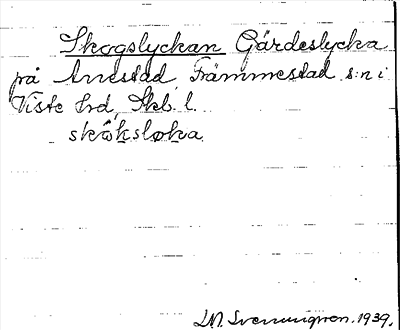 Skogslyckan Gärdeslycka
på Anestad, Främmestad s:n i
Viste hd, Skb. l.
skǒksloka
LM. Svenungsson. 1939.